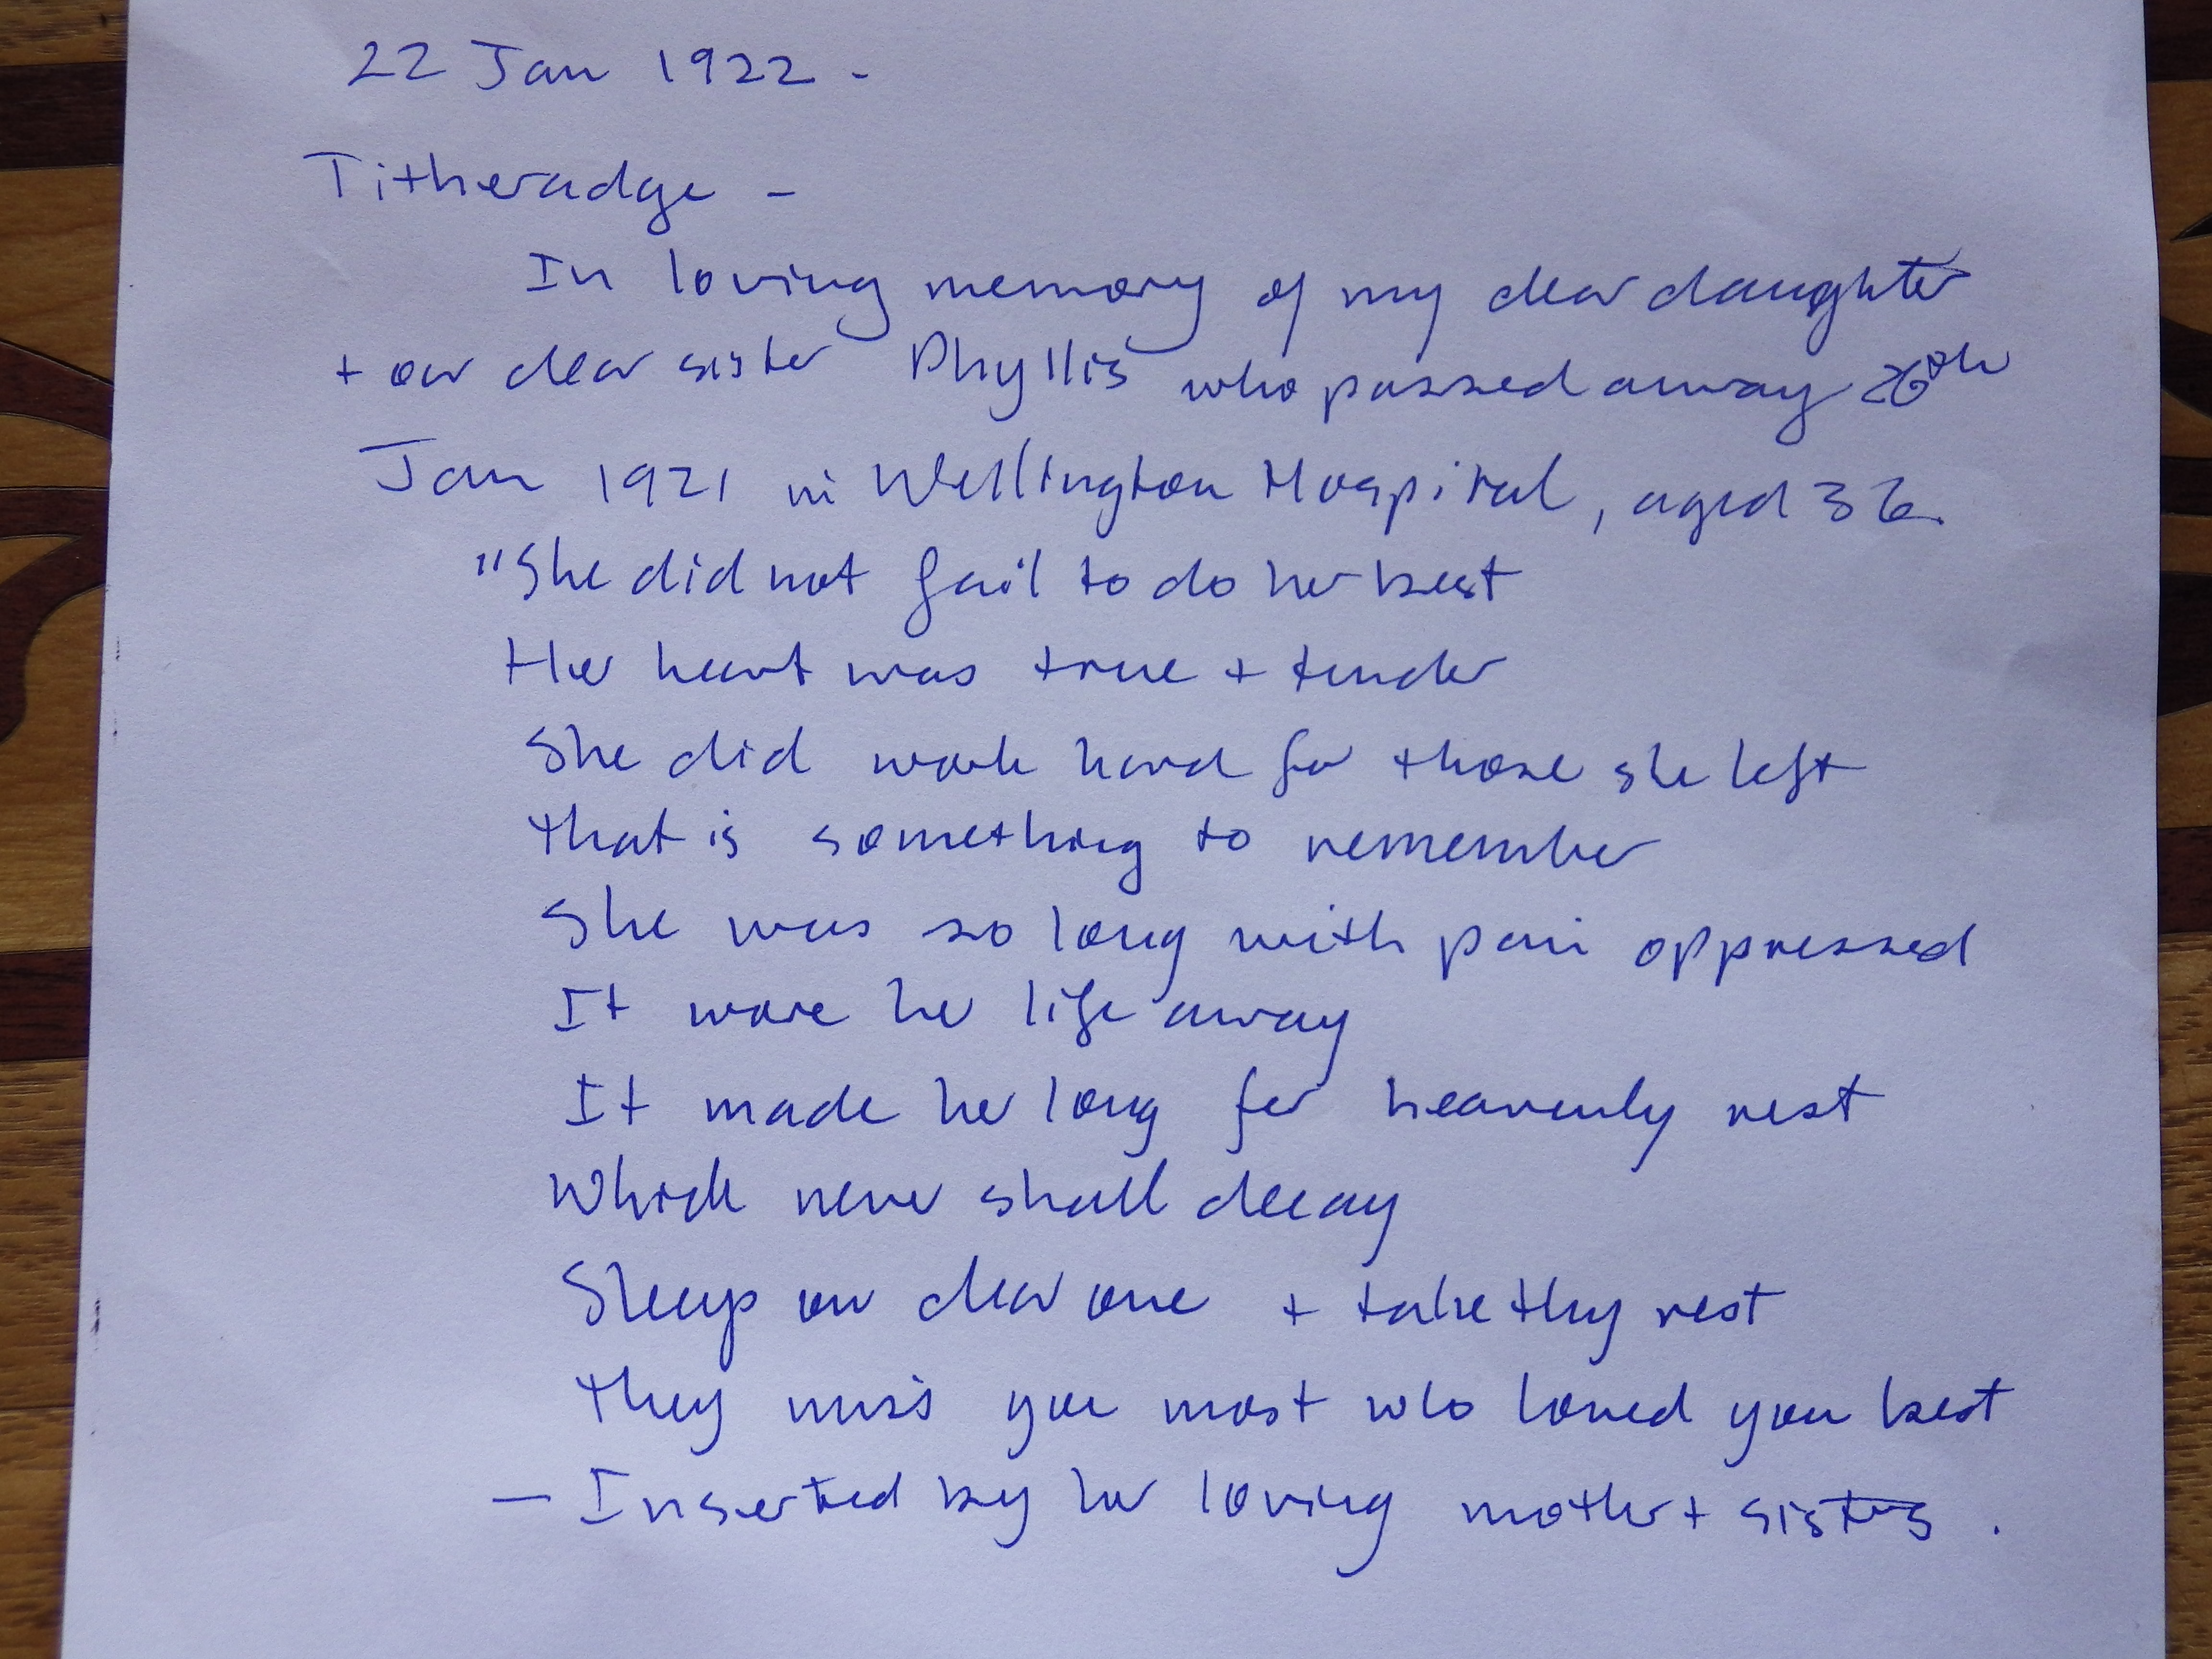 22 Jan 1922 -
Titheradge -
In loving memory of my dear daughter
+ our dear sister Phyllis who passed away 26th
Jan 1921 in Wellington Hospital, aged 36.
"She did not fail to do her best
Her heart was true + tender
She did work hard for those she left
That is something to remember
She was so long with pain oppressed
It wore her life away
It made her long for heavenly rest
Which never shall decay
Sleep on dear one + take thy rest
They miss you most who loved you best
- Inserted by her loving mother + sisters.